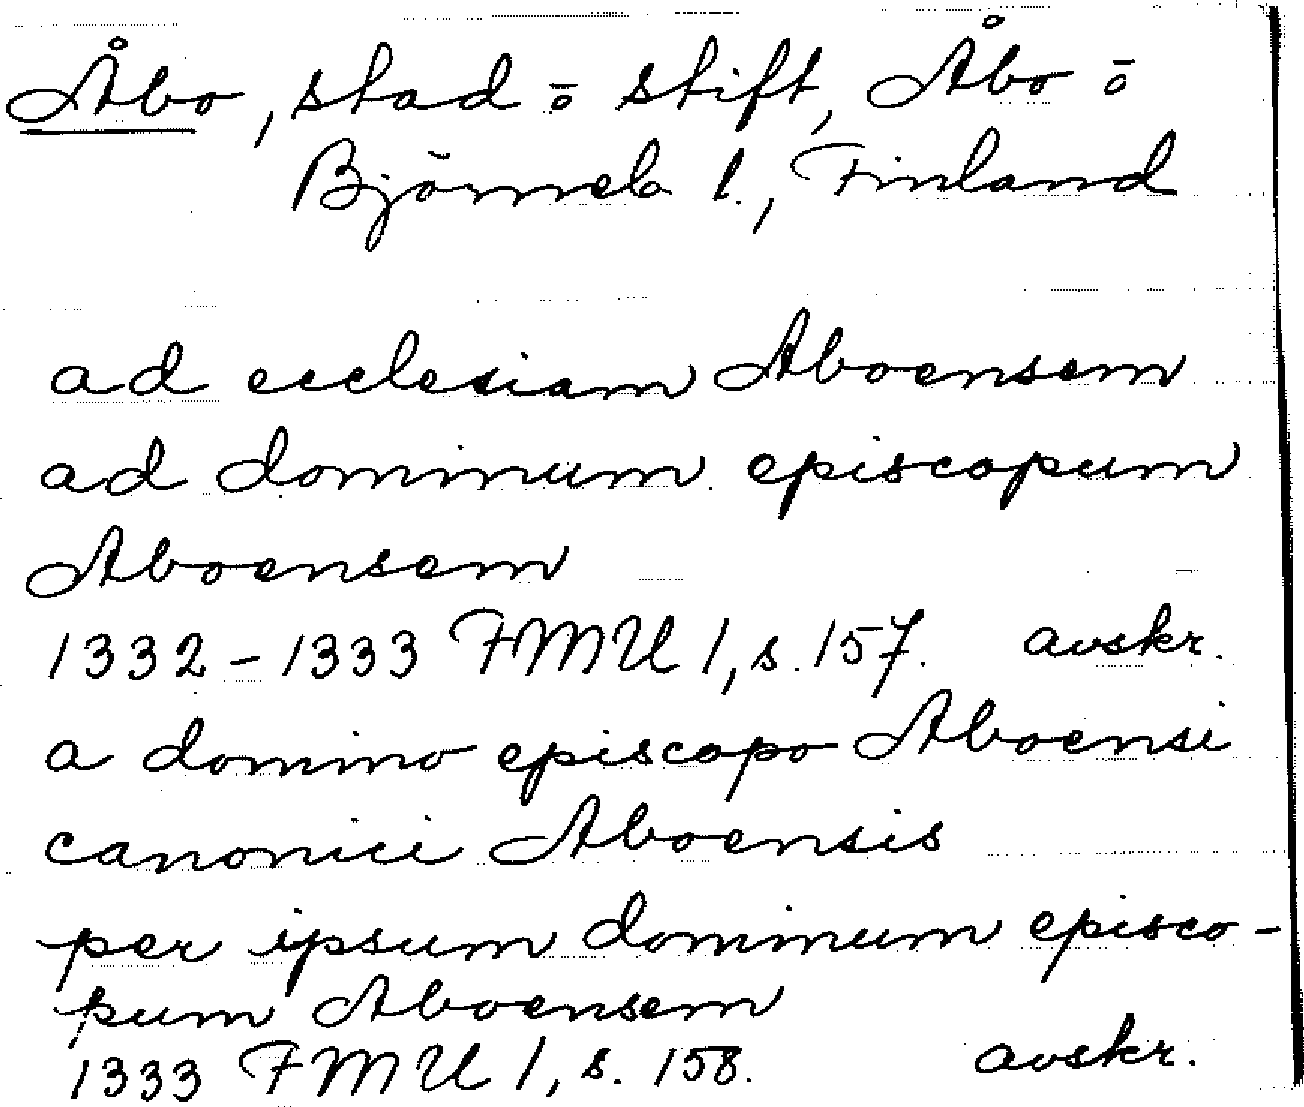 Åbo, stad ō stift, Åbo ō
Björneb l., Finland
ad ecclesiam Aboensem
ad dominum episcopum
Aboensem
1332-1333 FMU 1, s. 157. avskr.
a domino episcopo Aboensi
canonici Aboensis
per ipsum dominum episco-
pum Aboensem
1333 FMU 1, s. 158. avskr.